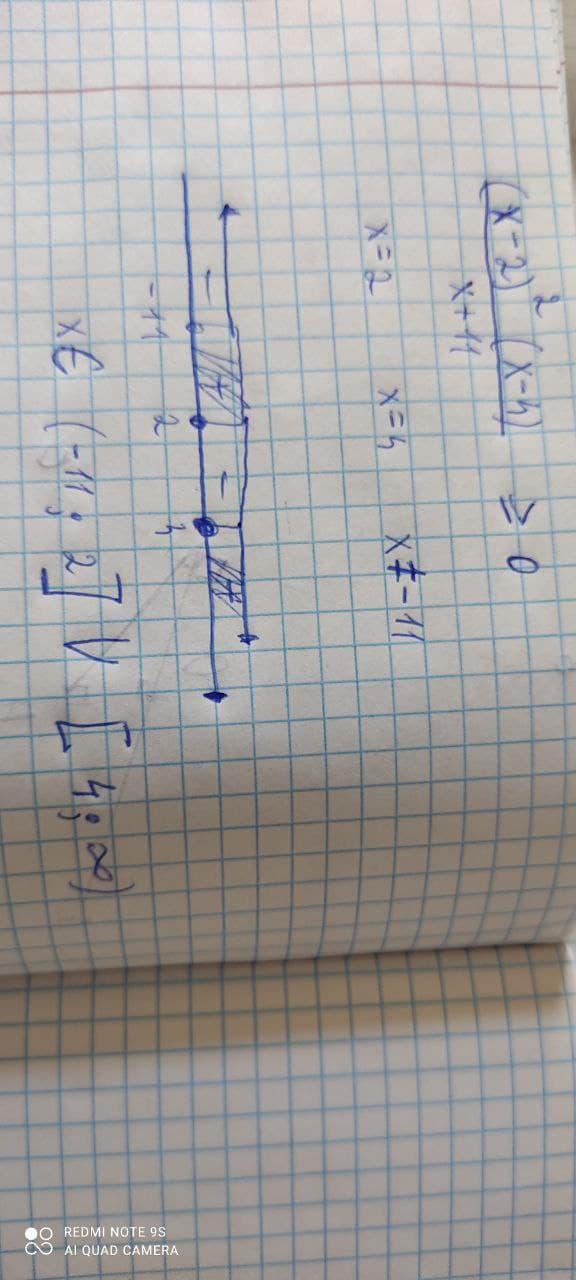 (x-2)² (x-4)
x+11
≥ 0
x=2 x=4 x≠-11
- + - +
-11 2 4
x∈ (-11; 2] V [4; ∞)
REDMI NOTE 9S
AI QUAD CAMERA